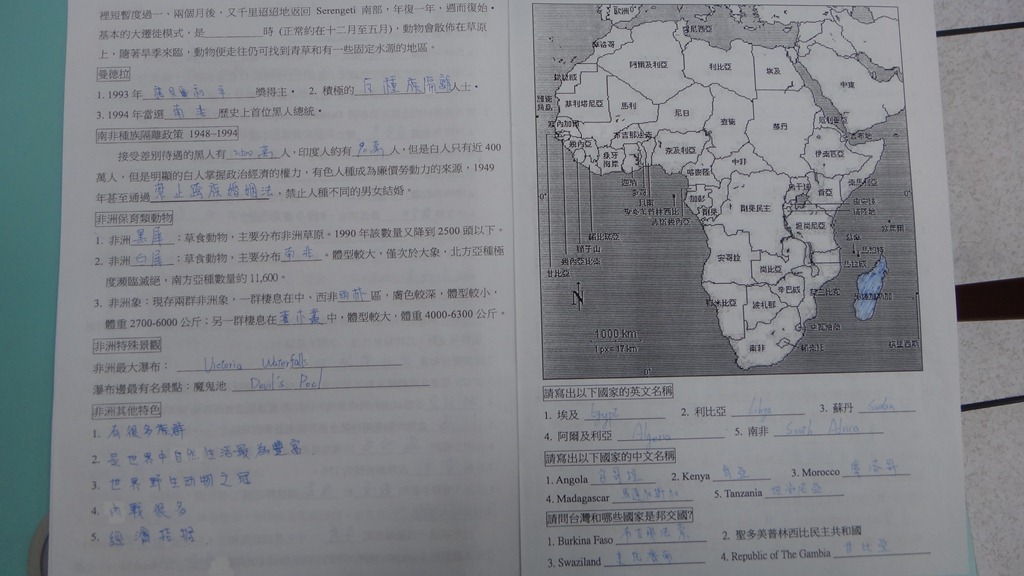 裡短暫度過一、兩個月後，又千里迢迢地返回 Serengeti 南部，年復一年，週而復始。
基本的大遷徙模式，是 時 (正常約在十二月至五月)，動物會散佈在草原
上，隨著旱季來臨，動物便走往仍可找到青草和有一些固定水源的地區。
曼德拉
1. 1993 年 獎得主。 2. 積極的 反種族隔離 人士。
3. 1994 年當選 南非 歷史上首位黑人總統。
南非種族隔離政策 1948~1994
接受差別待遇的黑人有 人，印度人約有 人，但是白人只有近 400
萬人，但是明顯的白人掌握政治經濟的權力，有色人種成為廉價勞動力的來源，1949
年甚至通過 禁止跨族婚姻法，禁止人種不同的男女結婚。
非洲保育類動物
1. 非洲 黑犀：草食動物，主要分布非洲草原。1990 年該數量又降到 2500 頭以下。
2. 非洲 白犀：草食動物，主要分布 南非。體型較大，僅次於大象，北方亞種極
度瀕臨滅絕，南方亞種數量約 11,600。
3. 非洲象：現存兩群非洲象，一群棲息在中、西非 區，膚色較深，體型較小，
體重 2700-6000 公斤；另一群棲息在 中，體型較大，體重 4000-6300 公斤。
非洲特殊景觀
非洲最大瀑布： Victoria Waterfalls
瀑布邊最有名景點：魔鬼池 Devil's Pool
非洲其他特色
1. 有很多族群
2. 是世界中自然生活最為豐富
3. 世界野生动物之冠
4. 內戰很多
5. 經濟拮据
歐洲
突尼西亞
摩洛哥
阿爾及利亞
利比亞
埃及
中東
茅利塔尼亞
馬利
尼日
查德
蘇丹
厄利垂亞
吉布地
塞內加爾
布吉那法索
幾內亞
象牙海岸
奈及利亞
中非
衣索匹亞
喀麥隆
迦納
多哥
貝南
聖多美普林西比
赤道幾內亞
加彭
剛果
剛果民主
烏干達
肯亞
索馬利亞
坦尚尼亞
獅子山
幾內亞比索
甘比亞
安哥拉
尚比亞
馬拉威
辛巴威
莫三比克
馬達加斯加
納米比亞
波札那
史瓦濟蘭
賴索托
南非
模里西斯
0°
0°
N
1000 km
1 px = 17 km
請寫出以下國家的英文名稱
1. 埃及 Egypt 2. 利比亞 Libya 3. 蘇丹 Sudan
4. 阿爾及利亞 Algeria 5. 南非 South Africa
請寫出以下國家的中文名稱
1. Angola 安哥拉 2. Kenya 肯亞 3. Morocco 摩洛哥
4. Madagascar 馬達加斯加 5. Tanzania 坦尚尼亞
請問台灣和哪些國家是邦交國?
1. Burkina Faso 布吉那法索 2. 聖多美普林西比民主共和國
3. Swaziland 史瓦濟蘭 4. Republic of The Gambia 甘比亞